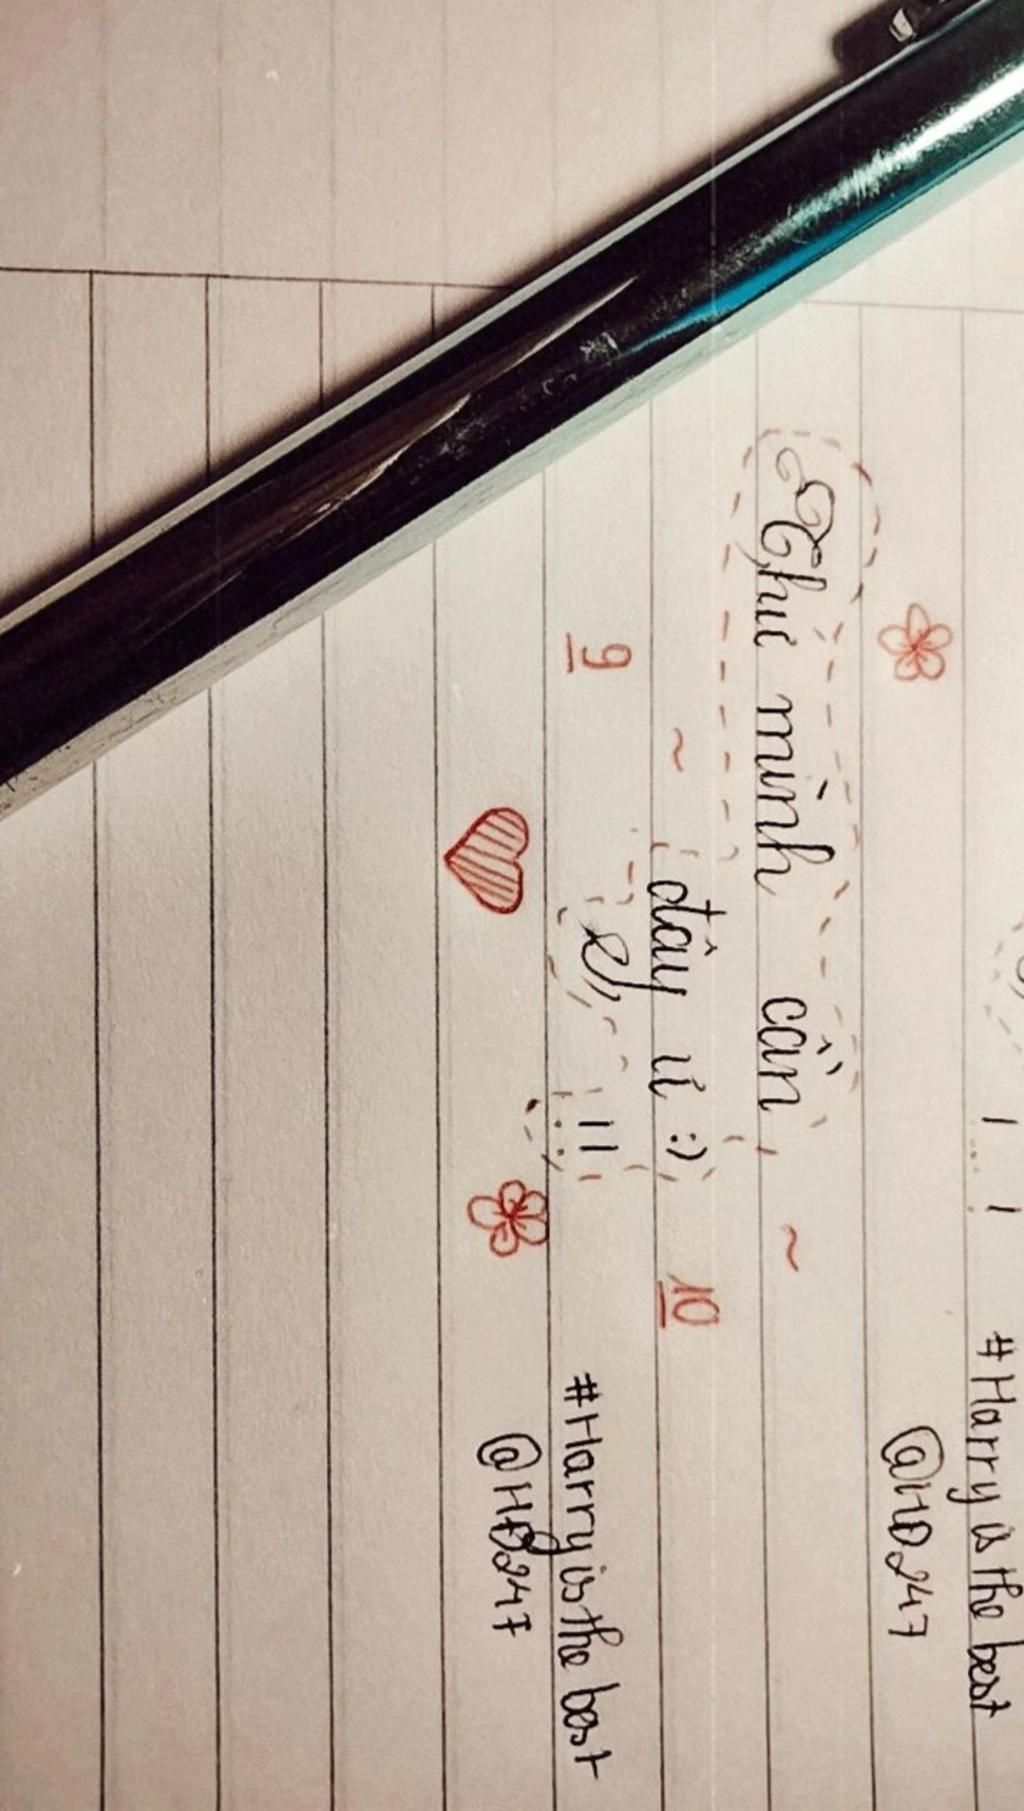 #Harry is the best
@HĐ247
Thứ mình cần
10
đây ú :)
9
!!
#Harry is the best
@HĐ247